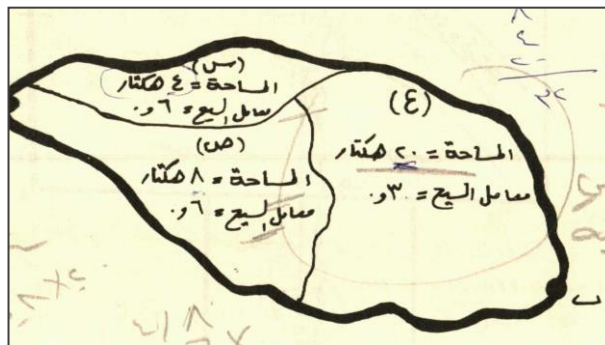 (س)
المساحة = ٤ هكتار
معامل السيح = ٦و.
(ص)
المساحة = ٨ هكتار
معامل السيح = ٦و.
(ع)
المساحة = ٢٠ هكتار
معامل السيح = ٣٠و.
ب